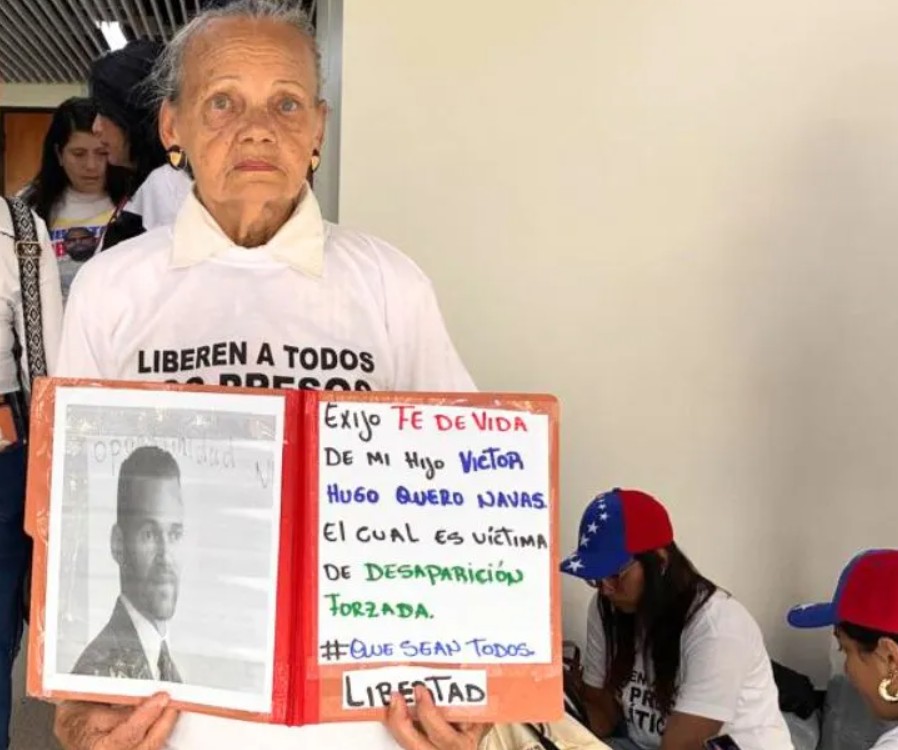 LIBEREN A TODOS
PRESOS
oportunidad
EXIJO FE DE VIDA
DE MI HIJO VICTOR
HUGO QUERO NAVAS.
EL CUAL ES VÍCTIMA
DE DESAPARICIÓN
FORZADA.
#QUE SEAN TODOS.
LIBERTAD